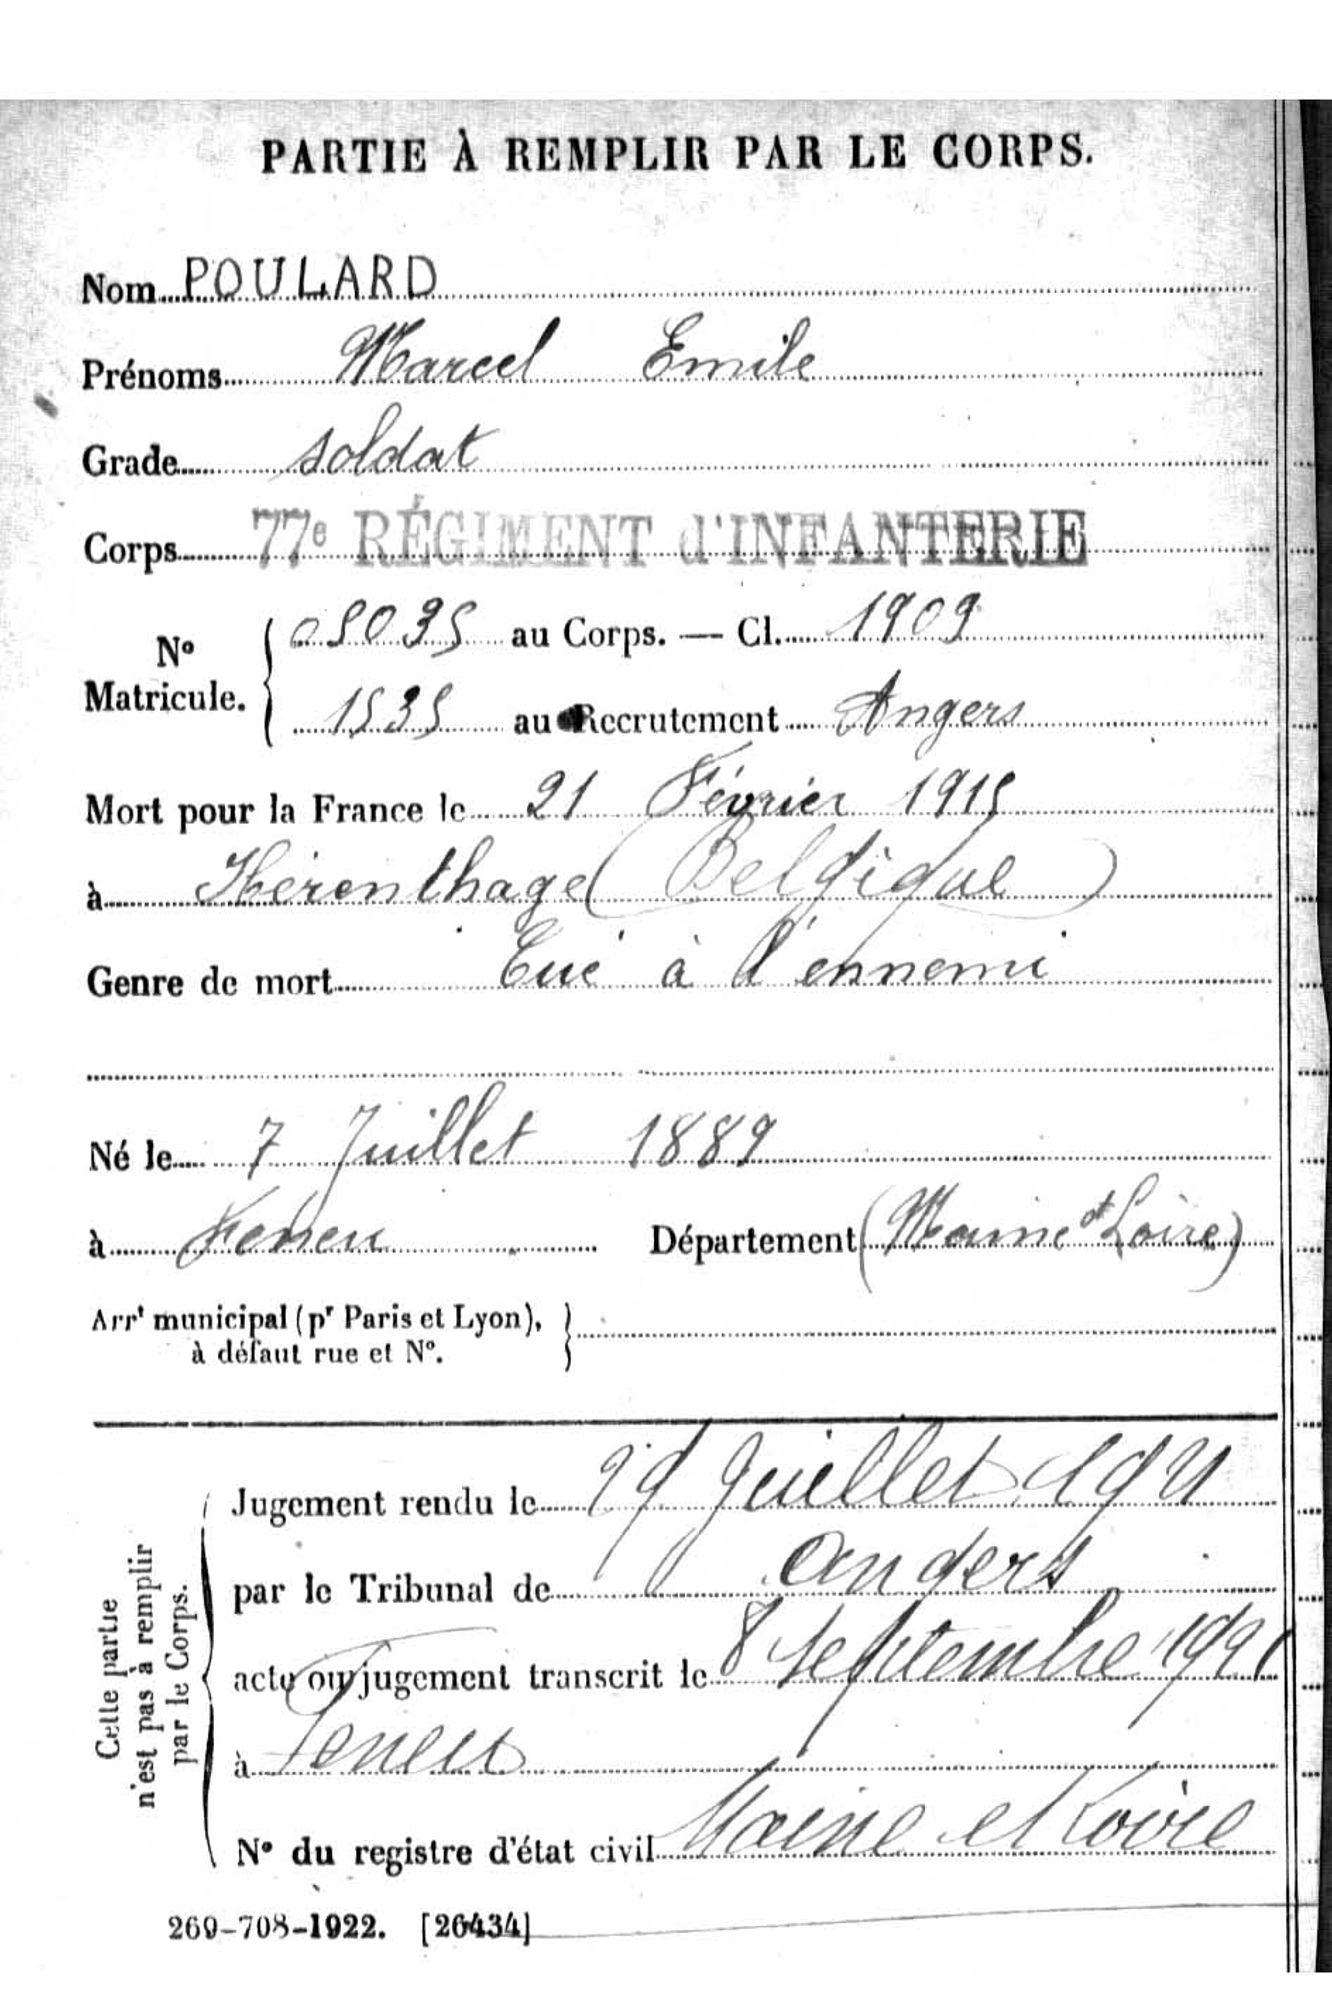 PARTIE À REMPLIR PAR LE CORPS.
Nom POULARD
Prénoms Marcel Emile
Grade soldat
Corps 77e RÉGIMENT d'INFANTERIE
No Matricule. { 05035 au Corps. — Cl. 1909
1535 au Recrutement Angers
Mort pour la France le 21 Février 1915
à Hérenthage (Belgique)
Genre de mort Tué à l'ennemi
Né le 7 Juillet 1889
à Feneu Département (Maine et Loire)
Arrt municipal (pr Paris et Lyon),
à défaut rue et No. }
Cette partie
n'est pas à remplir
par le Corps.
Jugement rendu le Juillet 1921
par le Tribunal de Angers
acte ou jugement transcrit le 8 septembre 1921
à Feneu
No du registre d'état civil Maine et Loire
269-708-1922. [26434]